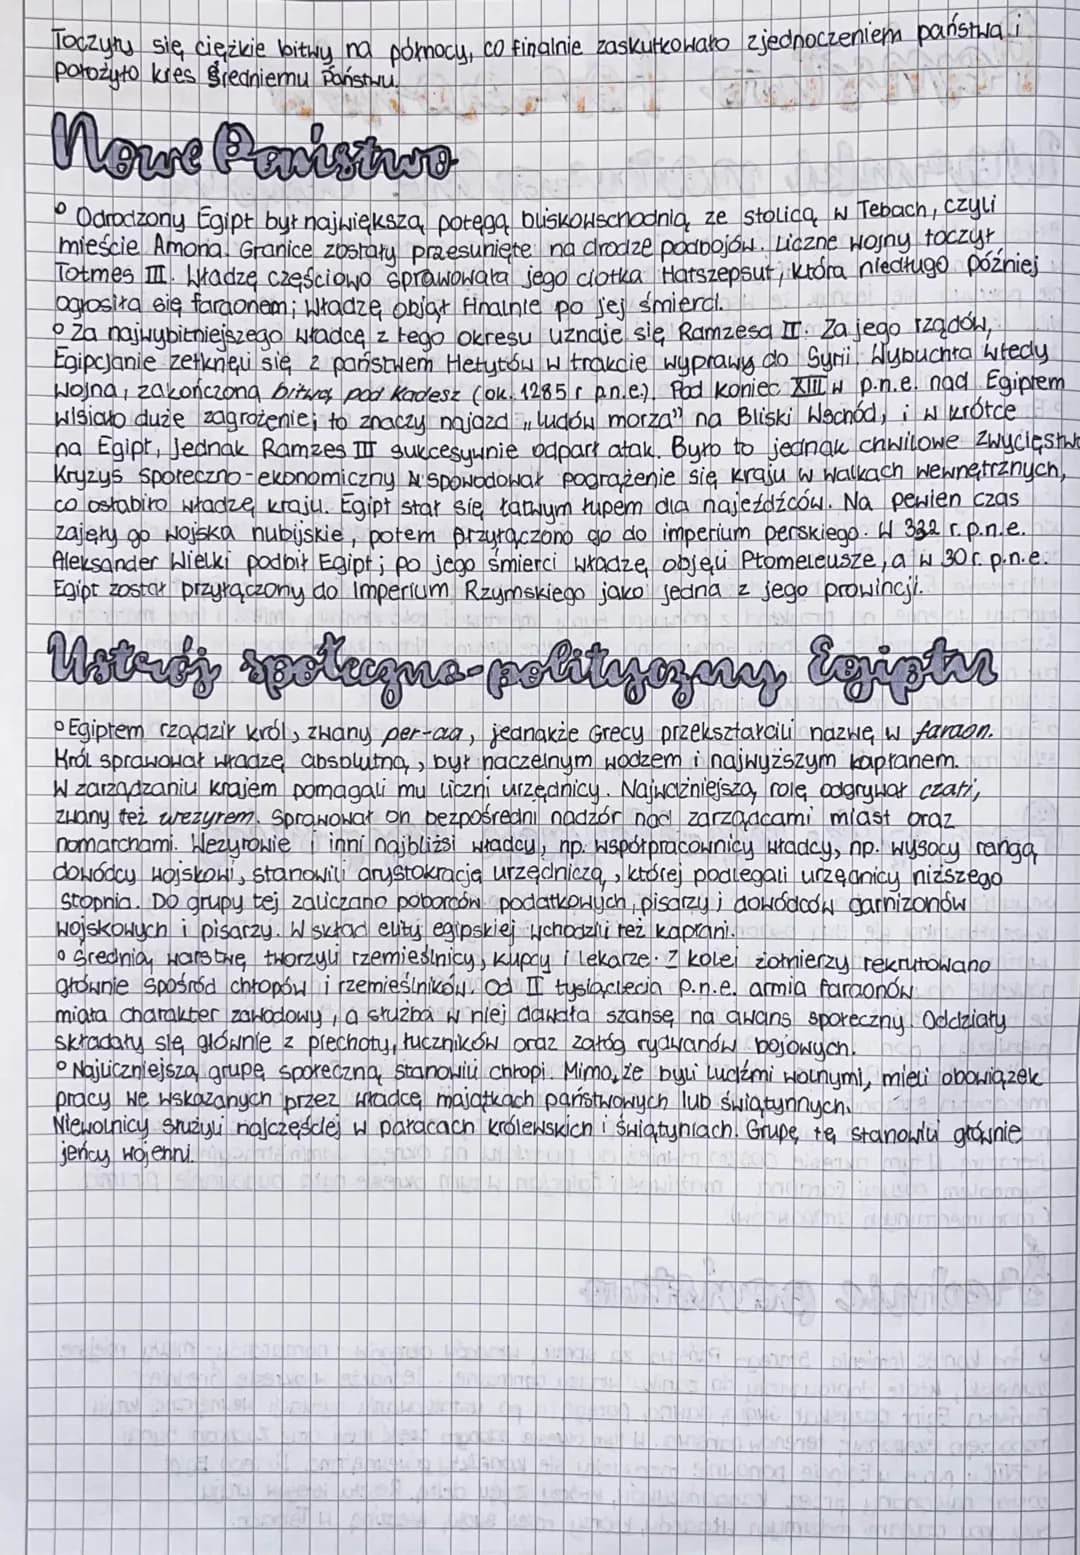 Toczyły się ciężkie bitwy na północy, co finalnie zaskutkowało zjednoczeniem państwa i
położyło kres Średniemu Państwu.
Nowe Państwo
Odrodzony Egipt był największą potęgą bliskowschodnią ze stolicą w Tebach, czyli
mieście Amona. Granice zostały przesunięte na drodze podbojów. Liczne wojny toczył
Totmes III. Władzę częściowo sprawowała jego ciotka Hatszepsut, która niedługo później
ogłosiła się faraonem; władzę objął finalnie po jej śmierci.
Za najwybitniejszego władcę z tego okresu uznaje się Ramzesa II. Za jego rządów,
Egipcjanie zetknęli się z państwem Hetytów w trakcie wyprawy do Syrii. Wybuchła wtedy
wojna, zakończona bitwą pod Kadesz (ok. 1285 r p.n.e.). Pod koniec XIII w p.n.e. nad Egiptem
wisiało duże zagrożenie; to znaczy najazd „ludów morza” na Bliski Wschód, i w krótce
na Egipt, jednak Ramzes III sukcesywnie odparł atak. Było to jednak chwilowe zwycięstwo
Kryzys społeczno-ekonomiczny spowodował pogrążenie się kraju w walkach wewnętrznych,
co osłabiło władzę kraju. Egipt stał się łatwym łupem dla najeźdźców. Na pewien czas
zajęły go wojska nubijskie, potem przyłączono go do imperium perskiego. W 332 r. p.n.e.
Aleksander Wielki podbił Egipt; po jego śmierci władzę objęli Ptomeleusze, a w 30 r. p.n.e.
Egipt został przyłączony do Imperium Rzymskiego jako jedna z jego prowincji.
Ustrój społeczno-polityczny Egiptu
Egiptem rządził król, zwany per-aa, jednakże Grecy przekształcili nazwę w faraon.
Król sprawował władzę absolutną, był naczelnym wodzem i najwyższym kapłanem.
W zarządzaniu krajem pomagali mu liczni urzędnicy. Najważniejszą rolę odgrywał czati,
zwany też wezyrem. Sprawował on bezpośredni nadzór nad zarządcami miast oraz
nomarchami. Wezyrowie i inni najbliżsi władcy, np. współpracownicy władcy, np. wysocy rangą
dowódcy wojskowi, stanowili arystokrację urzędniczą, której podlegali urzędnicy niższego
stopnia. Do grupy tej zaliczano poborców podatkowych, pisarzy i dowódców garnizonów
wojskowych i pisarzy. W skład elity egipskiej wchodzili też kapłani.
Średnią warstwę tworzyli rzemieślnicy, kupcy i lekarze. Z kolei żołnierzy rekrutowano
głównie spośród chłopów i rzemieślników. Od II tysiąclecia p.n.e. armia faraonów
miała charakter zawodowy, a służba w niej dawała szansę na awans społeczny. Oddziały
składały się głównie z piechoty, łuczników oraz załóg rydwanów bojowych.
Najliczniejszą grupę społeczną stanowili chłopi. Mimo, że byli ludźmi wolnymi, mieli obowiązek
pracy we wskazanych przez władcę majątkach państwowych lub świątynnych.
Niewolnicy służyli najczęściej w pałacach królewskich i świątyniach. Grupę tę stanowili głównie
jeńcy wojenni.